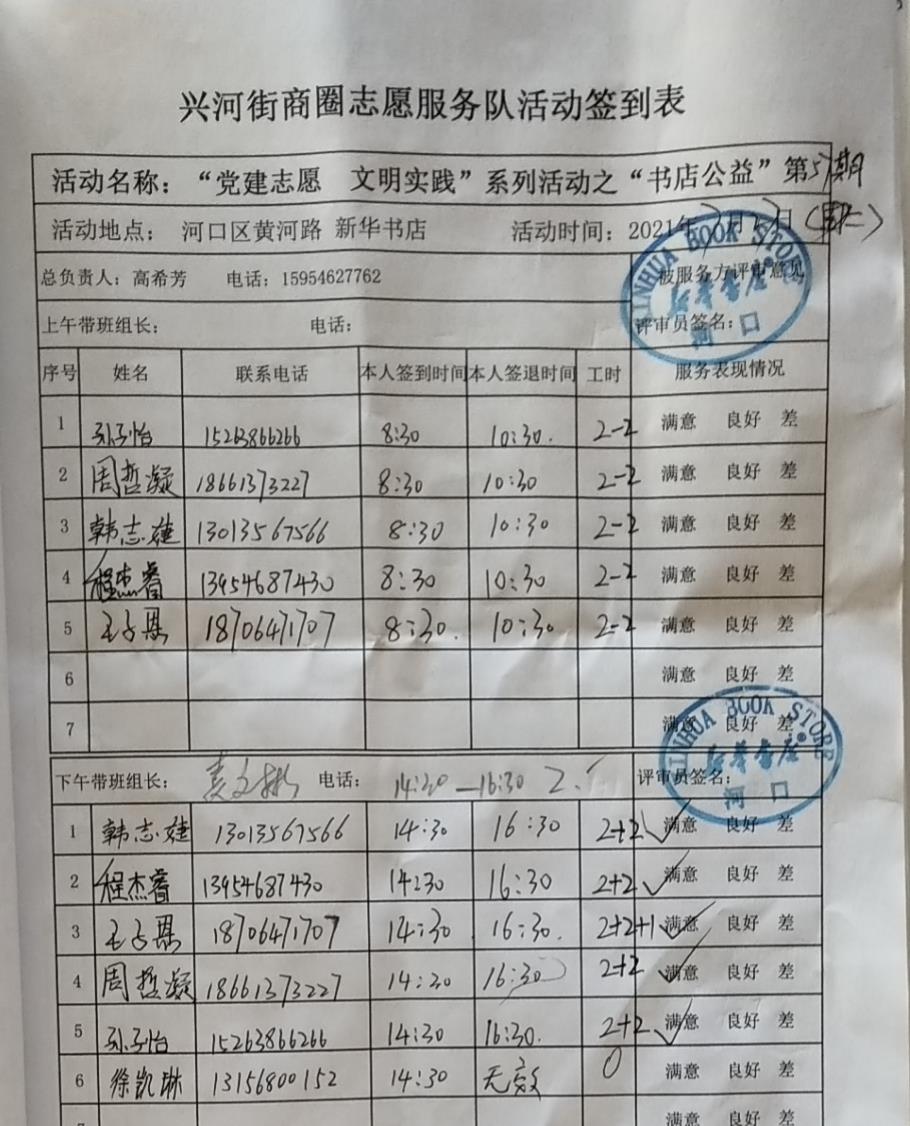 兴河街商圈志愿服务队活动签到表
活动名称：“党建志愿 文明实践”系列活动之“书店公益”第57期
活动地点： 河口区黄河路 新华书店 活动时间：2021年7月27日（周二）
总负责人：高希芳 电话：15954627762 被服务方评审意见
XINHUA BOOK STORE
新华书店
河口
上午带班组长： 电话： 评审员签名：
序号 姓名 联系电话 本人签到时间 本人签退时间 工时 服务表现情况
1 孙子怡 15263866266 8:30 10:30. 2-2 满意 良好 差
2 周哲凝 18661373227 8:30 10:30 2-2 满意 良好 差
3 韩志婕 13013567566 8:30 10:30 2-2 满意 良好 差
4 程杰睿 13954687430 8:30 10:30 2-2 满意 良好 差
5 王子恩 18706471707 8:30. 10:30 2-2 满意 良好 差
6 满意 良好 差
7 满意 良好 差
XINHUA BOOK STORE
新华书店
河口
下午带班组长： 袁文彬 电话： 14:30—16:30 评审员签名：
1 韩志婕 13013567566 14:30 16:30 2+2 满意 良好 差
2 程杰睿 13954687430 14:30 16:30 2+2 满意 良好 差
3 王子恩 18706471707 14:30 16:30. 2+2+1 满意 良好 差
4 周哲凝 18661373227 14:30 16:30 2+2 满意 良好 差
5 孙子怡 15263866266 14:30 16:30. 2+2 满意 良好 差
6 徐凯琳 13156800152 14:30 无效 0 满意 良好 差
满意 良好 差